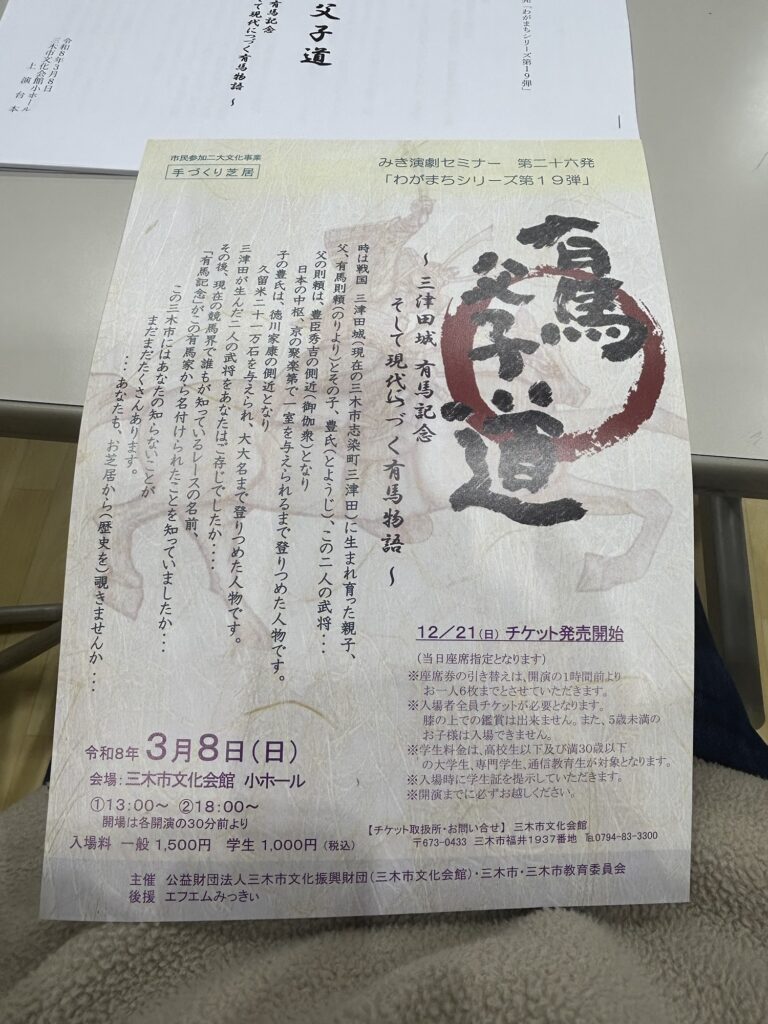 父子道
有馬記念
て現代につづく有馬物語 ～
「わがまちシリーズ第19弾」
令和8年3月8日
三木市文化会館小ホール
上演台本
市民参加二大文化事業
手づくり芝居
みき演劇セミナー　第二十六発
「わがまちシリーズ第19弾」
有馬
父子道
～ 三津田城 有馬記念
そして現代につづく有馬物語 ～
時は戦国　三津田城(現在の三木市志染町三津田)に生まれ育った親子、
父、有馬則頼(のりより)とその子、豊氏(とようじ)、この二人の武将・・・
父の則頼は、豊臣秀吉の側近(御伽衆)となり
日本の中枢、京の聚楽第で一室を与えられるまで登りつめた人物です。
子の豊氏は、徳川家康の側近となり
久留米二十一万石を与えられ、大大名まで登りつめた人物です。
三津田が生んだ二人の武将をあなたはご存じでしたか・・・・
その後、現在の競馬界で誰もが知っているレースの名前、
「有馬記念」がこの有馬家から名付けられたことを知っていましたか・・・
この三木市にはあなたの知らないことが
まだまだたくさんあります。
・・・あなたも、お芝居から(歴史を)覗きませんか・・・
12／21(日) チケット発売開始
(当日座席指定となります)
※座席券の引き替えは、開演の1時間前より
お一人6枚までとさせていただきます。
※入場者全員チケットが必要となります。
膝の上での鑑賞は出来ません。また、5歳未満の
お子様は入場できません。
※学生料金は、高校生以下及び満30歳以下
の大学生、専門学生、通信教育生が対象となります。
※入場時に学生証を提示していただきます。
※開演までに必ずお越しください。
令和8年 3月8日(日)
会場：三木市文化会館 小ホール
①13:00～ ②18:00～
開場は各開演の30分前より
入場料 一般 1,500円　学生 1,000円(税込)
【チケット取扱所・お問い合せ】 三木市文化会館
〒673-0433 三木市福井1937番地 ℡0794-83-3300
主催　公益財団法人三木市文化振興財団(三木市文化会館)・三木市・三木市教育委員会
後援　エフエムみっきぃ